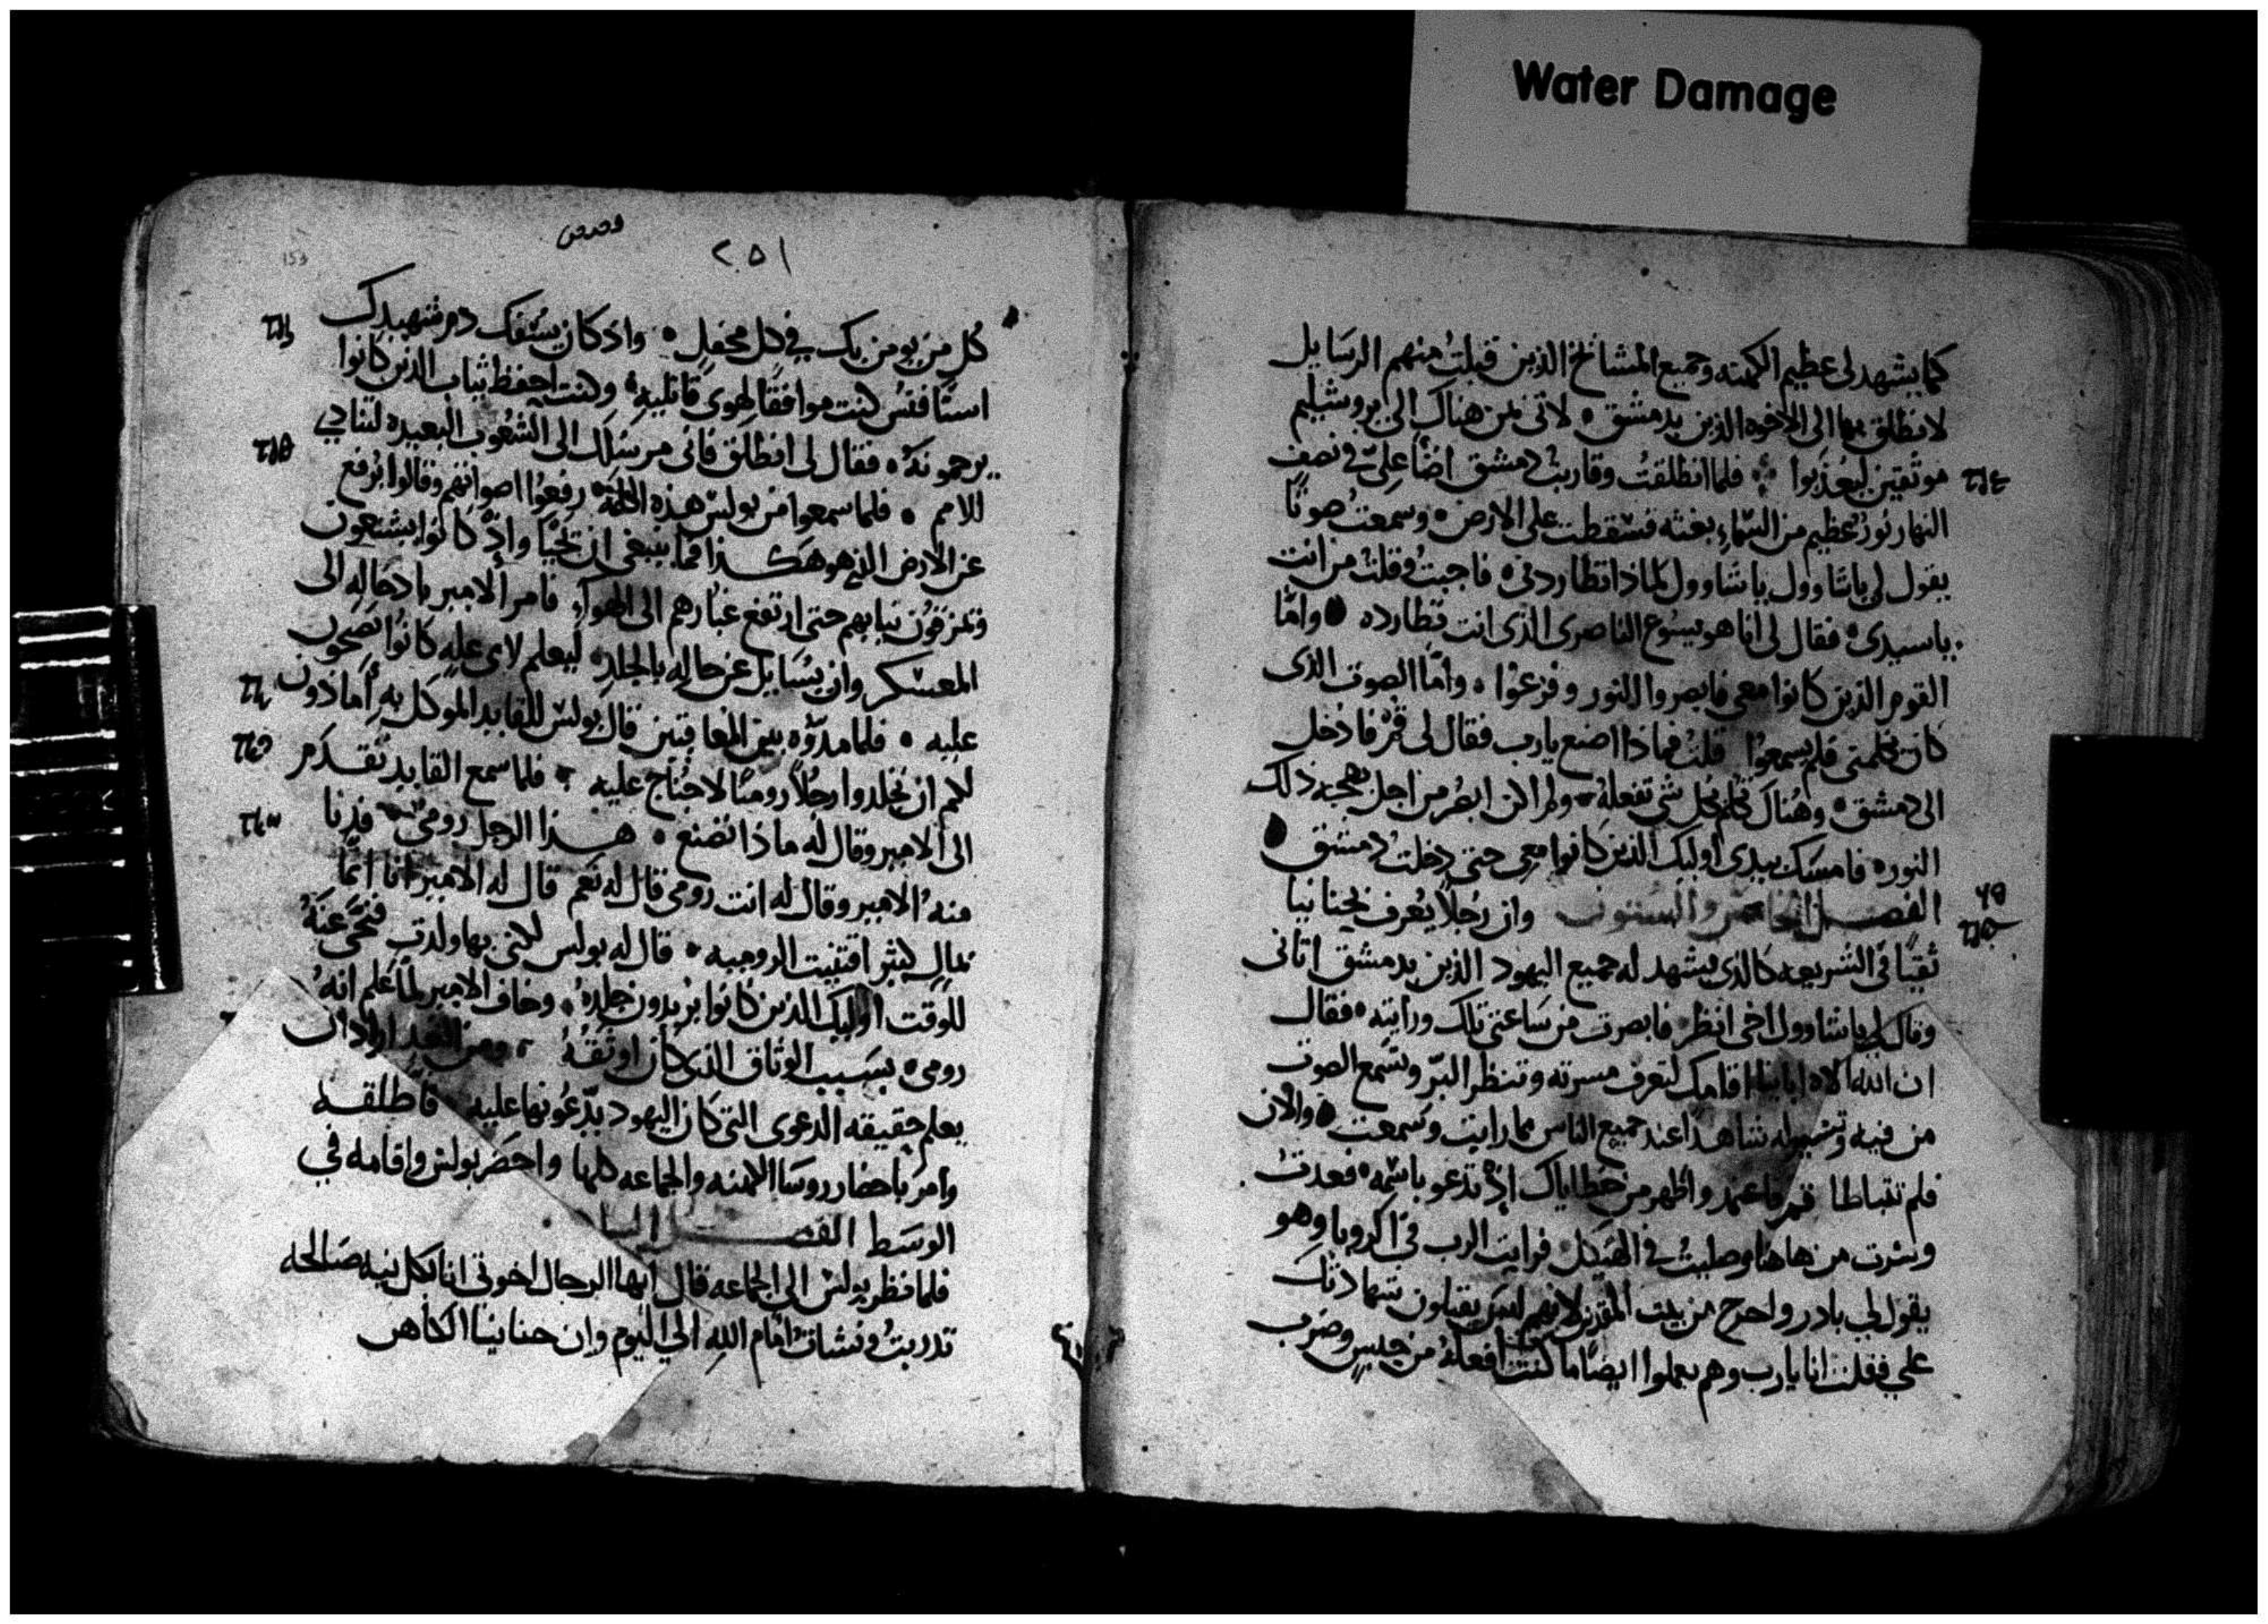 Water Damage
كما يشهد لى عظيم الكهنه وجميع المشائخ الذين قبلتُ منهم الرسايل
لانطلق بها الى الاخوه الذين بدمشق لاتى بمن هناك الى ايروشليم
موثقين ليعُذبوا فلما انطلقتُ وقاربتُ دمشق اضأ علىّ فى نصف
النهار نورٌ عظيم من السّماءِ بغته فسقطت على الارض وسمعتُ صوتًا
يقول لى ياشاوول ياشاوول لماذا تطاردنى فاجبتُ وقلتُ من انت
ياسيدى فقال لى انا هو يسوع الناصرى الذى انت تطارده وامّا
القوم الذين كانوا معى فابصروا النور وفزعوا وامّا الصوت الذى
كان يكلمنى فلم يسمعوا قلتُ فماذا اصنع يارب فقال لى قُمْ فادخل
الى دمشق وهُناك تُكلم بكل شى تفعلهُ ولم اكن ابصُر من اجل بهجه ذلك
النور فامسك بيدى اوليك الذين كانوا معى حتى دخلتُ دمشق
الفصــل الخامس والستون وان رجُلاً يُعرف بحنانيا
تقيًا فى الشريعه كالذى يشهد له جميع اليهود الذين بدمشق اتانى
وقال لى ياشاوول اخى انظر فابصرت من ساعتى تلك ورايته فقال
ان الله الاه ابائنا اقامك لتعرف مسرته وتنظر البّر وتسمع الصوت
من فيه وتصير له شاهدًا عند جميع الناس بما رايت وسمعت والان
فلم تتباطا قم فاعتمد واطهر من خطاياك اذ تدعو باسمه فعدتُ
وسرت من هاهنا وصليتُ فى الهيكل فرايت الرب فى الرويا وهو
يقول لى بادر واخرج من بيت المقدس لانهم ليس يقبلون شهادتك
على فقلت انا يارب وهم يعملوا ايضًا ما كنت افعلهُ من حبسٍ وضرب
٢٥١
153
كُل من يومن بك فى كل محفلٍ واذ كان يسُفك دم شهيدك
اسطافنُس كنت موافقًا لهوى قاتليه وكنت احفظ ثياب الذين كانوا
يرجمونهُ فقال لى انطلق فانى مرسلك الى الشعُوب البعيده لتنادي
للامم فلما سمعوا من بولس هذه الكلمة رفعُوا اصواتهم وقالوا يُرفع
عن الارض الذى هو هكــذا فما ينبغى ان يحيا واذ كانوا يشنعون
ويمزقون ثيابهم حتى ارتفع غبارهم الى الهوآء فامر الامير بادخاله الى
المعسكر وان يُسايل عن حاله بالجلد ليعلم لاى عله كانوا يصيحون
عليه فلما مدّوه بين المعاقبين قال بولس للقايد الموكل به أماذون
لكم ان تجلدوا رجُلاً روميًا لاجُناح عليه فلما سمع القايد تقــدم
الى الامير وقال له ماذا تصنع هــذا الرجل رومى فدنا
منهُ الامير وقال له انت رومى قال له نعم قال له الامير انا انمّا
بمالٍ كثير اقتنيت الروميه قال له بولس لكنى بها ولدت فتنحى عنهُ
للوقت اوليك الذين كانوا يريدون جلدهُ وخاف الامير لما علم انهُ
رومى بسَبب الوثاق الذى كان اوثقهُ ومن الغد اراد ان
يعلم حقيقه الدعوى التى كان اليهود يدّعُونها عليه فاطلقــه
وامر باحضار روسَا الكهنه والجماعه كلها واحضَر بولس واقامه فى
الوسَط الفصــل
فلما نظر بولس الى الجماعه قال ايها الرجال اخوتى انا بكل نيه صالحه
تدربتُ ونشاتُ امام اللهِ الى اليوم وان حنانيا الكاهن